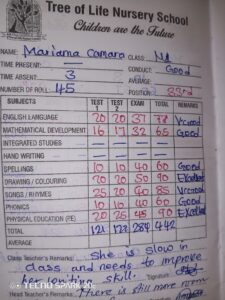 Tree of Life Nursery School
Children are the Future
NAME: Mariama Camara CLASS: N1
TIME PRESENT: — CONDUCT: Good
TIME ABSENT: 3 AVERAGE:
NUMBER OF ROLL: 45 POSITION: 33rd
SUBJECTS TEST 1 TEST 2 EXAM TOTAL REMARKS
ENGLISH LANGUAGE 20 20 37 V.Good
MATHEMATICAL DEVELOPMENT 16 17 32 65 Good
INTEGRATED STUDIES — — — — —
HAND WRITING — — — — —
SPELLINGS 10 10 40 60 Good
DRAWING / COLOURING 20 20 50 90 Excellent
SONGS / RHYMES 25 20 40 85 V.Good
PHONICS 10 10 40 60 Good
PHYSICAL EDUCATION (PE) 20 25 45 90 Excellent
TOTAL 121 284
AVERAGE
Class Teacher's Remarks: She is slow in
class and needs to improve
skill. Signature
Head Teacher's Remarks: There is still more room
TECNO SPARK